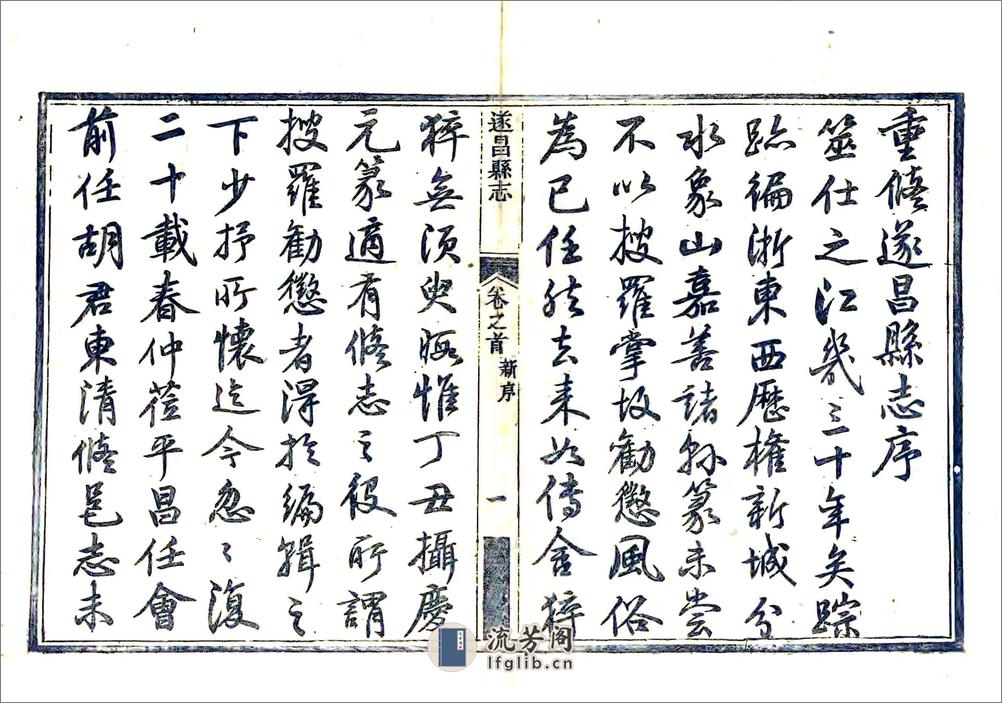 重脩遂昌縣志序
筮仕之江幾三十年矣踪
跡徧浙東西歷權新城分
水象山嘉善諸縣篆未嘗
不以搜羅掌故勸懲風俗
為己任然去来如傳舍猝
遂昌縣志
卷之首
新序
一
猝無須臾暇惟丁丑攝慶
元篆適有脩志之役所謂
搜羅勸懲者淂於編輯之
下少抒所懷迄今忽〻復
二十載春仲莅平昌任會
前任胡君東清脩邑志未
流芳阁
lfglib.cn